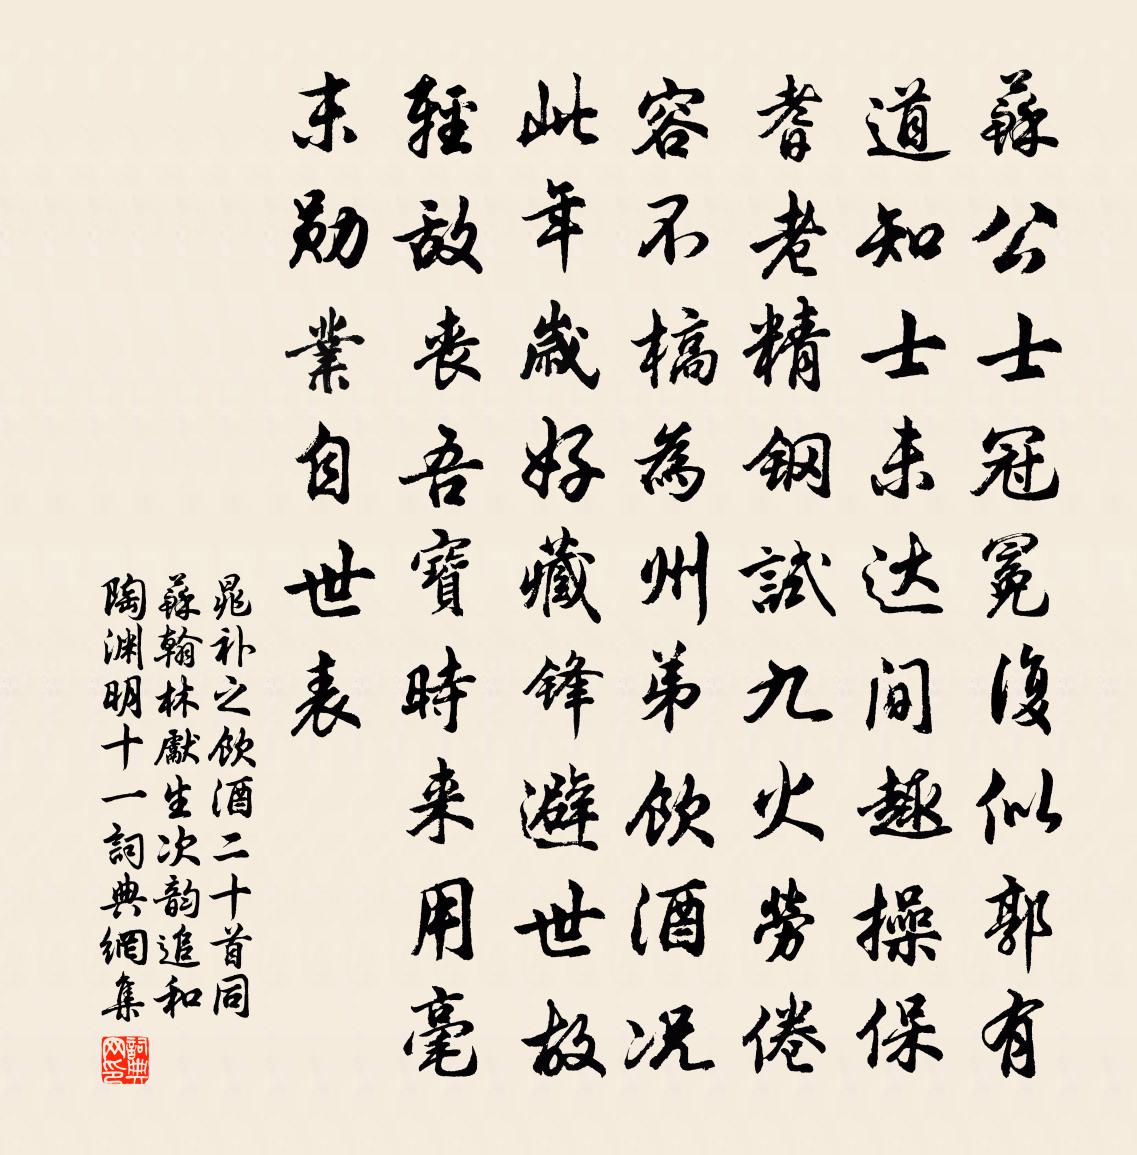 蘇公士冠冕復似郭有
道知士未达间趣操保
耆老精鋼試九火劳倦
容不槁為州弟飲酒况
此年歲好藏锋避世故
輕敌丧吾寶時来用毫
末勋業自世表
晁补之飲酒二十首同
蘇翰林獻生次韵追和
陶渊明十一詞典網集
詞典网印